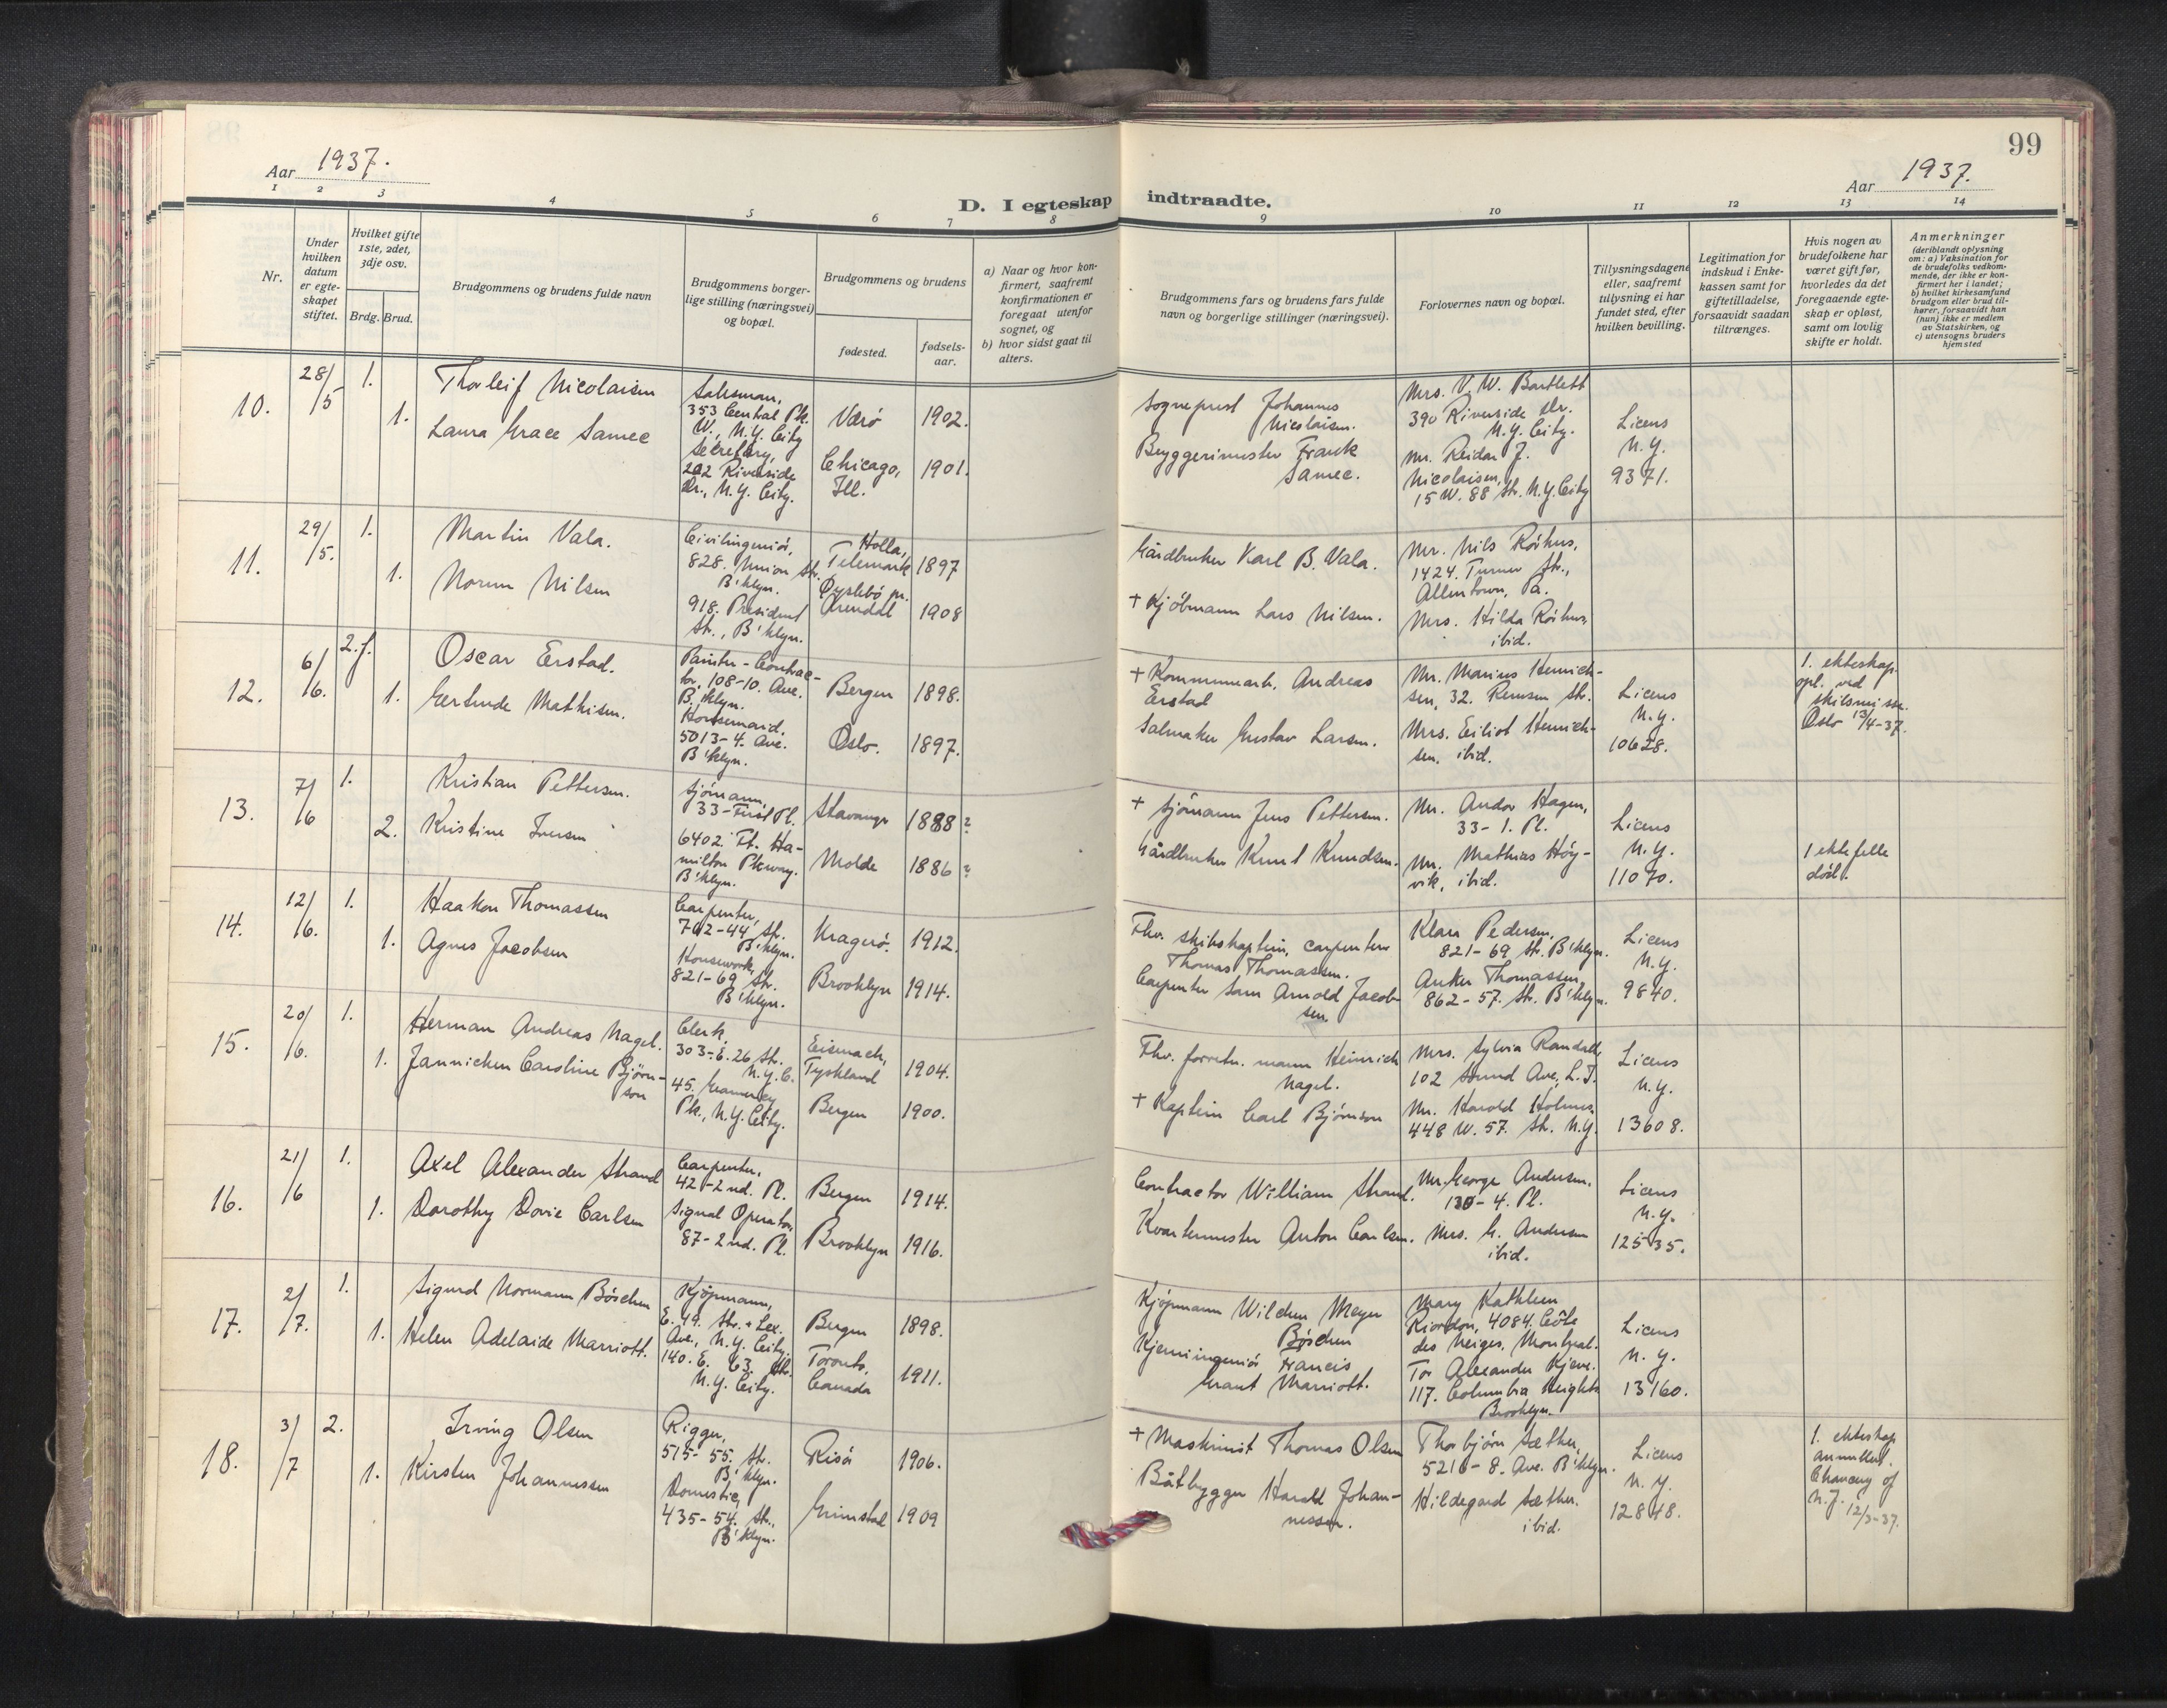 Aar 1937.
99
Aar 1937.
D. I egteskap indtraadte.
1 2 3 4 5 6 7 8 9 10 11 12 13 14
Nr.
Under hvilken datum er egteskapet stiftet.
Hvilket gifte 1ste, 2det, 3dje osv.
Brdg. Brud.
Brudgommens og brudens fulde navn
Brudgommens borgerlige stilling (næringsvei) og bopæl.
Brudgommens og brudens
fødested.
fødselsaar.
a) Naar og hvor konfirmert, saafremt konfirmationen er foregaat utenfor sognet, og
b) hvor sidst gaat til alters.
Brudgommens fars og brudens fars fulde navn og borgerlige stillinger (næringsvei).
Forlovernes navn og bopæl.
Tillysningsdagene eller, saafremt tillysning ei har fundet sted, efter hvilken bevilling.
Legitimation for indskud i Enkekassen samt for giftetilladelse, forsaavidt saadan tiltrænges.
Hvis nogen av brudefolkene har været gift før, hvorledes da det foregaaende egteskap er opløst, samt om lovlig skifte er holdt.
Anmerkninger
(deriblandt oplysning om: a) Vaksination for de brudefolks vedkommende, der ikke er konfirmert her i landet; b) hvilket kirkesamfund brudgom eller brud tilhører, forsaavidt han (hun) ikke er medlem av Statskirken, og c) utensogns bruders hjemsted
10.
28/5
1.
1.
Thorleif Nicolaisen
Laura Grace Samec
Salesman,
353 Central Pk.
W., N.Y. City
Secretary,
202 Riverside
Dr., N.Y. City.
Værö
Chicago,
Ill.
1902.
1901.
Sogneprest Johannes
Nicolaisen.
Bryggerimester Frank
Samec.
Mrs. V. W. Bartlett
390 Riverside Dr.
N.Y. City.
Mr. Reidar J.
Nicolaisen,
15 W. 88 Str. N.Y. City
Licens
N.Y.
9371.
11.
29/5.
1.
1.
Martin Vala.
Norun Nilsen
Civilingeniör,
828. Union Str.
B'klyn.
918. President
Str., B'klyn.
Holla,
Telemark
Öyslebö pr.
Arendal
1897
1908
Gårdbruker Karl B. Vala.
+ Kjöbmann Lars Nilsen.
Mr. Nils Röihus,
1424. Turner Str.,
Allentown, Pa.
Mrs. Hilda Röihus,
ibid.
12.
6/6.
2. f.
1.
Oscar Erstad.
Gertrude Mathisen.
Painter-Contrac-
tor, 108-10. Ave.
B'klyn.
Housemaid,
5013-4. Ave.
B'klyn.
Bergen
Oslo.
1898.
1897.
+ Kommuneark. Andreas
Erstad
Salmaker Gustav Larsen.
Mr. Marius Henrich-
sen, 32. Remsen Str.
Mrs. Eiliot Henrich-
sen. ibid.
Licens
N.Y.
10628.
1. ekteskap
opl. ved
skilsmisse.
Oslo 13/4-37.
13.
7/6
1.
2.
Kristian Pettersen.
Kristine Iversen
Sjömann,
33-First Pl.
6402 Ft. Ha-
milton Pkway.
B'klyn.
Stavanger
Molde
1888?
1886?
+ Sjömann Jens Pettersen.
Gårdbruker Knut Knudsen.
Mr. Andor Hagen,
33-1. Pl.
Mr. Mathias Höy-
vik, ibid.
Licens
N.Y.
11070.
1 ektefelle
död.
14.
12/6.
1.
1.
Haakon Thomassen
Agnes Jacobsen
Carpenter,
702-44 Str.
B'klyn.
Housework,
821-69 Str.
B'klyn.
Kragerö.
Brooklyn
1912.
1914.
Fhv. skibskaptein, carpenter
Thomas Thomassen.
Carpenter Sam Arnold Jacob-
sen.
Klara Pedersen,
821-69 Str. B'klyn.
Anker Thomassen,
862-57. Str. B'klyn.
Licens
N.Y.
9840.
15.
20/6.
1.
1.
Herman Andreas Nagel.
Jannicken Caroline Björn-
son
Clerk,
303-E. 26 Str.
N.Y.C.
45. Gramercy
Pk., N.Y. City.
Eisenach,
Tyskland
Bergen
1904.
1900.
Fhv. forretn. mann Heinrich
Nagel.
+ Kaptein Carl Björnson
Mrs. Sylvia Randall,
102 Sound Ave, L.I.
Mr. Harold Holmes,
448 W. 57. Str. N.Y.
Licens
N.Y.
13608.
16.
21/6
1.
1.
Axel Alexander Strand
Dorothy Dovie Carlsen
Carpenter,
42-2nd. Pl.
Signal Operator,
87-2nd. Pl.
Bergen
Brooklyn
1914.
1916.
Contractor William Strand.
Kvartermester Anton Carlsen.
Mr. George Andersen.
130-4. Pl.
Mrs. G. Andersen
ibid.
Licens
N.Y.
12535.
17.
2/7.
1.
1.
Sigurd Normann Böschen
Helen Adelaide Marriott.
Kjöpmann,
E. 49. Str. + Lex.
Ave., N.Y. City.
140. E. 63. Str.
N.Y. City.
Bergen
Toronto,
Canada
1898.
1911.
Kjöpmann Wilchen Meyer
Böschen
Kjemiingeniör Francis
Grant Marriott.
Mary Kathleen
Riordon, 4084. Côte
des Neiges, Montreal.
Tor Alexander Kjeve.
117. Columbia Heights
Brooklyn.
Licens
N.Y.
13160.
18.
3/7
2.
1.
Irving Olsen
Kirsten Johannessen
Rigger,
515-55. Str.
B'klyn.
Domestic,
435-54. Str.,
B'klyn.
Risör
Grimstad
1906.
1909
+ Maskinist Thomas Olsen
Båtbygger Harald Johan-
nessen.
Thorbjörn Sæther,
5216-8. Ave. B'klyn.
Hildegard Sæther.
ibid.
Licens
N.Y.
12848.
1. ekteskap
annullert.
Chancery of
N.J. 12/3-37.